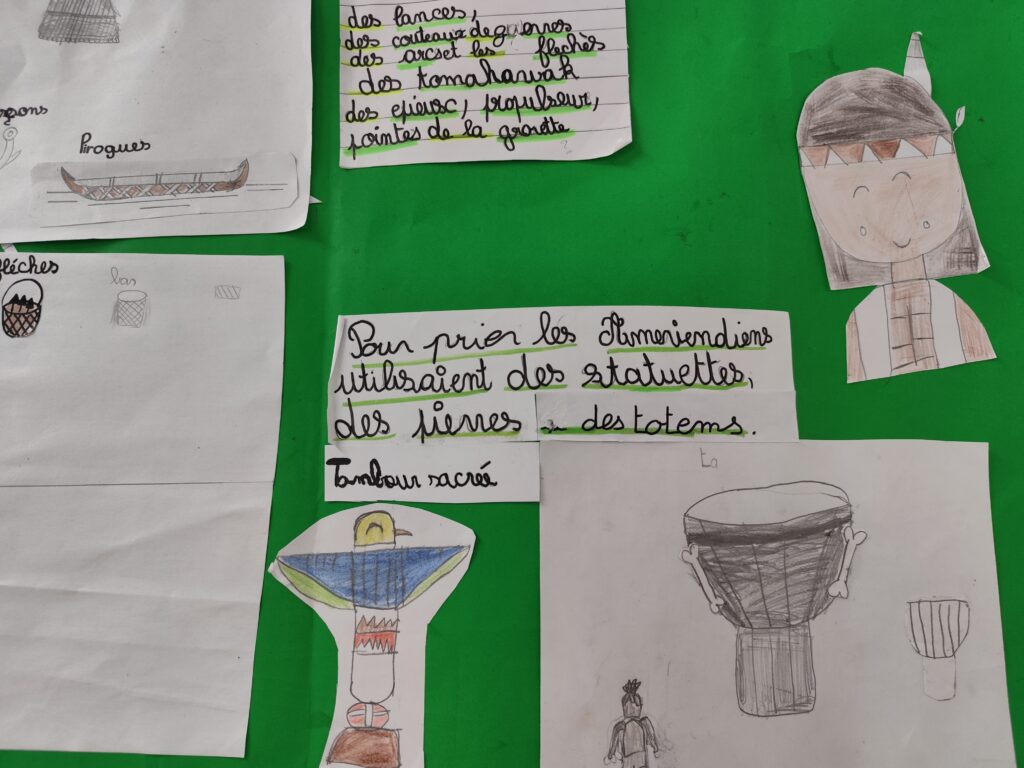 des lances,
des couteaux de guerres
des arcs et les flechès
des tomahawak
des epieux, propulseur,
pointes de la grosette
Pirogues
fléches
bas
Pour prier les Ameriendiens
utilisaient des statuettes,
des pierres
des totems.
Tambour sacréé
ta